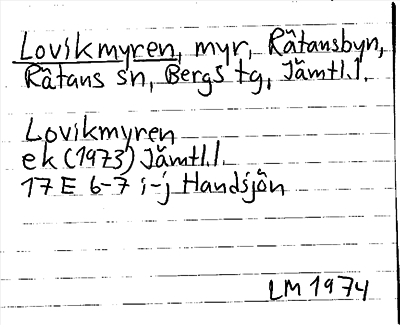 Lovikmyren, myr, Rätansbyn,
Rätans sn, Bergs tg, Jämtl.l.
Lovikmyren
ek (1973) Jämtl.l.
17 E 6-7 i-j Handsjön
LM 1974